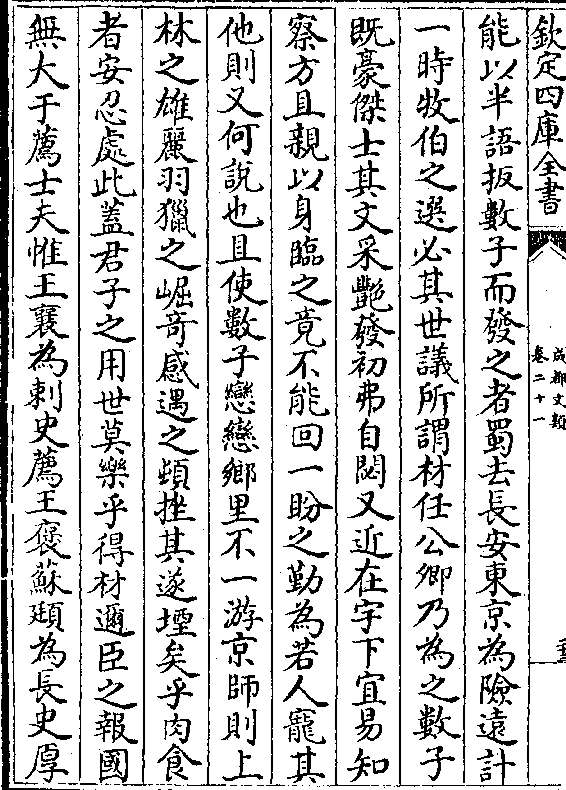 欽定四庫全書
成都文類
卷二十一
能以半語扳數子而發之者蜀去長安東京為險遠計
一時牧伯之選必其世議所謂材任公卿乃為之數子
既豪傑士其文采艷發初弗自閟又近在宇下宜易知
察方且親以身臨之竟不能回一盼之勤為若人寵其
他則又何說也且使數子戀戀鄉里不一游京師則上
林之雄麗羽獵之崛奇感遇之頓挫其遂堙矣乎肉食
者安忍處此蓋君子之用世莫樂乎得材邇臣之報國
無大于薦士夫惟王襄為刺史薦王褒蘇頲為長史厚